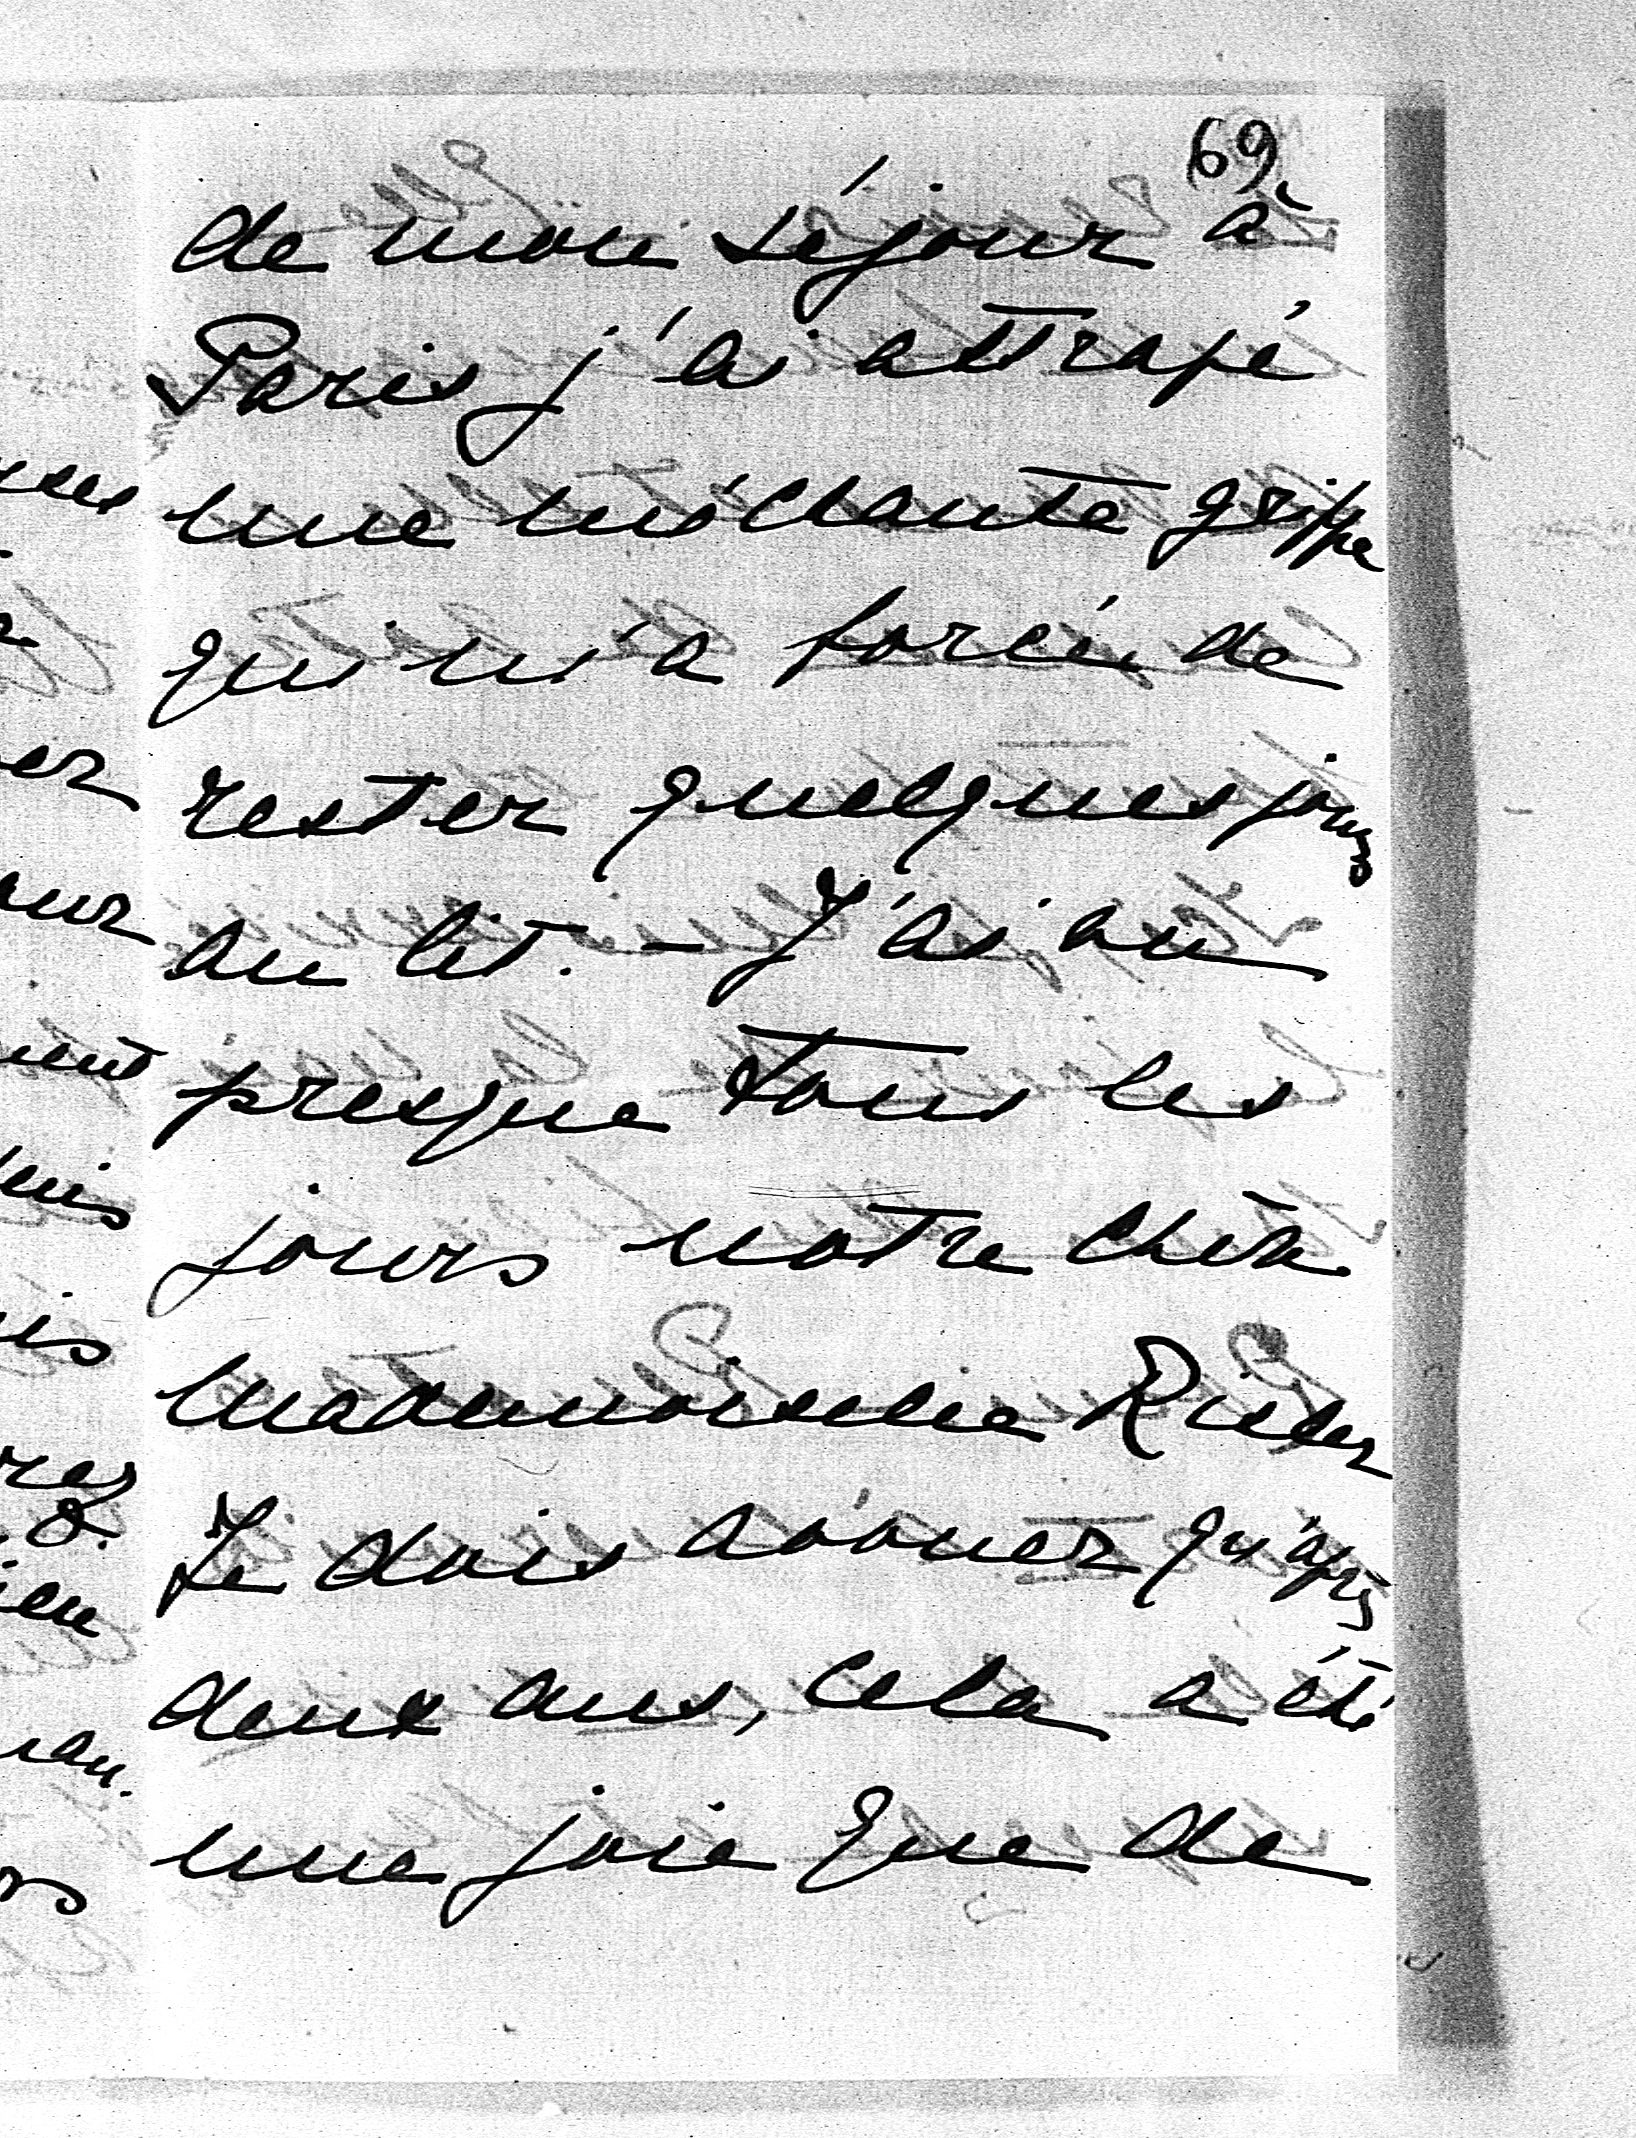 69
de mon séjour à
Paris j'ai attrapé
une méchante grippe
qui m'a forcée de
rester quelques jours
au lit. – J'ai vu
presque tous les
jours notre chère
Mademoiselle Rieder
Je dois avouer qu'après
deux ans, cela a été
une joie que de